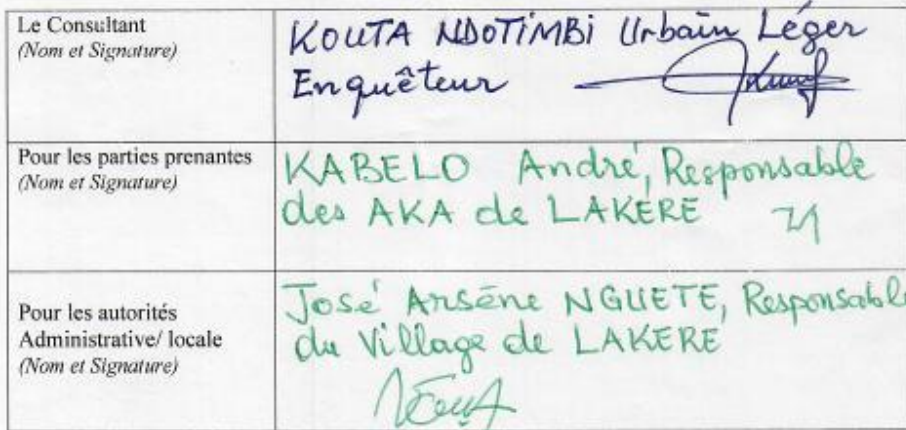 Le Consultant
(Nom et Signature)
KOUTA NDOTIMBI Urbain Léger
Enquêteur
Pour les parties prenantes
(Nom et Signature)
KABELO André, Responsable
des AKA de LAKERE
Pour les autorités
Administrative/ locale
(Nom et Signature)
José Arsène NGUETE, Responsable
du Village de LAKERE